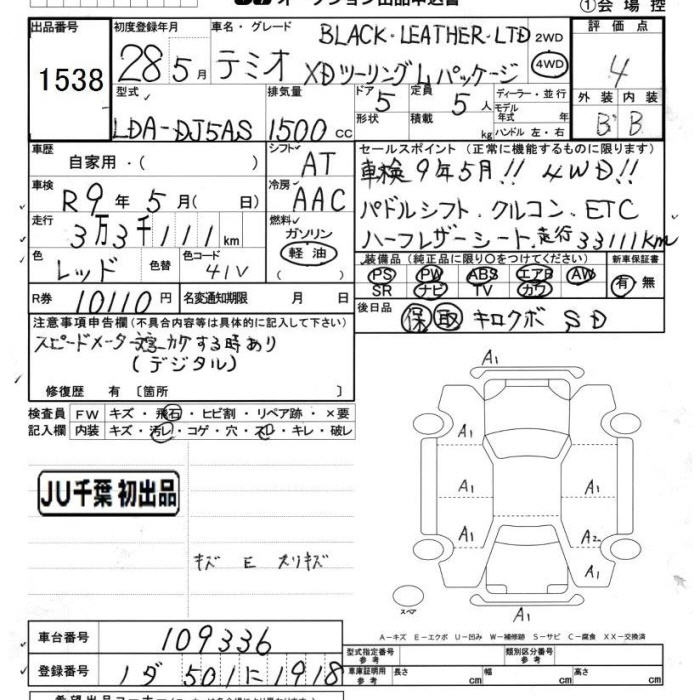 オークション出品申込書
①会場控
出品番号 1538
初度登録年月 28 5月
車名・グレード BLACK・LEATHER・LTD
テミオ XDツーリングLパッケージ
2WD
4WD
評価点 4
外装 内装
B' B
型式 LDA-DJ5AS
排気量 1500 cc
ドア 5
形状
定員 5 人
積載 kg
ディーラー・並行
モデル年式 年
ハンドル 左・右
車歴 自家用・( )
シフト AT
セールスポイント (正常に機能するものに限ります)
車検9年5月!! 4WD!!
パドルシフト.クルコン.ETC
ハーフレザーシート.走行33111Km
車検 R9年5月( 日)
冷房 AAC
走行 3万3千111km
燃料 ガソリン
軽油
( )
色 レッド
色替
色コード 41V
装備品 (純正品に限り○をつけてください)
PS PW ABS エアB AW
SR ナビ TV カワ
新車保証書
有・無
R券 10110円
名変通知期限 月 日
後日品 保 取 キロクボ SD
注意事項申告欄 (不具合内容等は具体的に記入して下さい)
スピードメーター
カケする時あり
(デジタル)
修復歴 有 〔箇所 〕
検査員 FW キズ・飛石・ヒビ割・リペア跡・×要
記入欄 内装 キズ・汚レ・コゲ・穴・スレ・キレ・破レ
JU千葉 初出品
キズ E スリキズ
A1
A1
A1 A1
A1 A2
A1
A1
スペア
A-キズ E-エクボ U-凹み W-補修跡 S-サビ C-腐食 XX-交換済
車台番号 109336
型式指定番号 参考
類別区分番号 参考
登録番号 ノダ 501 に 1918
車庫証明用 参考
長さ cm 幅 cm 高さ cm